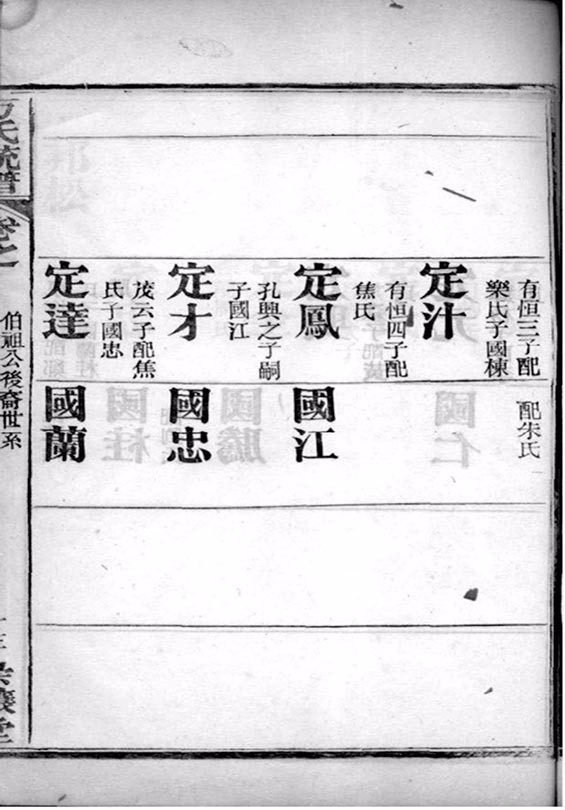 有恒三子配
樂氏子國棟
配朱氏
定汁
有恒四子配
焦氏
定鳳
國江
孔興之子嗣
子國江
定才
國忠
茂云子配焦
氏子國忠
定達
國蘭
氏統譜
卷之
伯祖公後裔世系